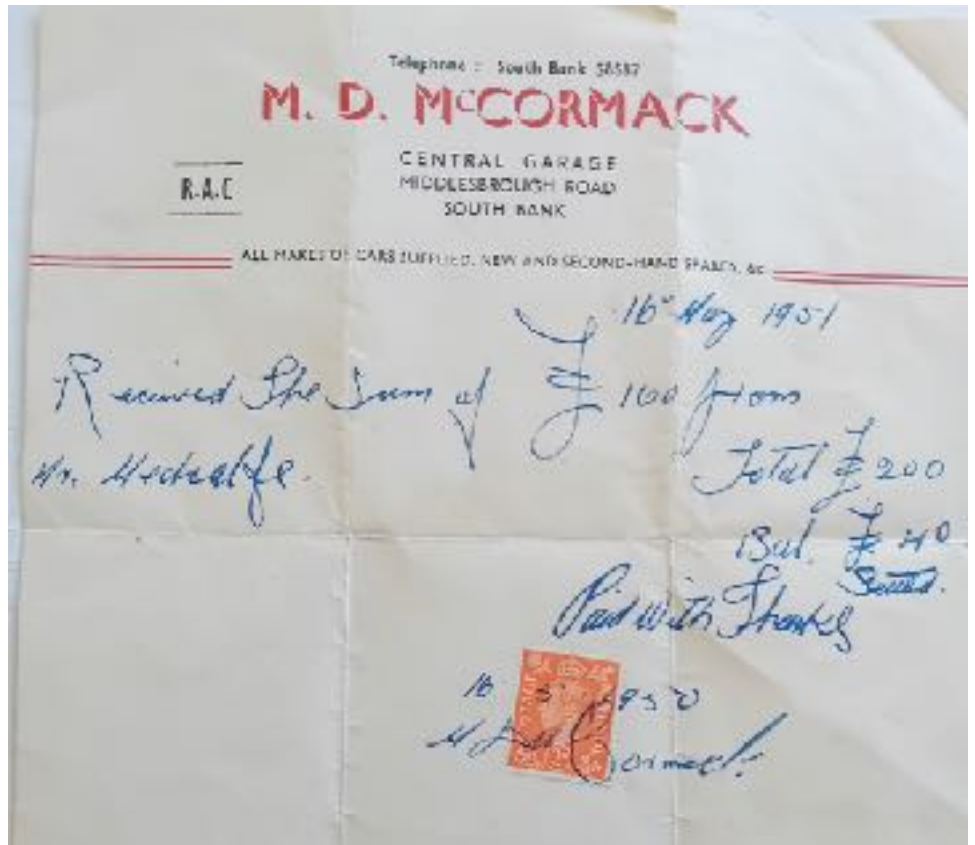 Telephone : South Bank 58587
M. D. McCORMACK
CENTRAL GARAGE
MIDDLESBROUGH ROAD
SOUTH BANK
R.A.C
ALL MAKES OF CARS SUPPLIED, NEW AND SECOND-HAND SPARES, &c
16 May 1951
Received The Sum of £ 160 from
Mr. Medcalfe.
Total £ 200
Bal. £ 40
Paid With Thanks
16 5 1950